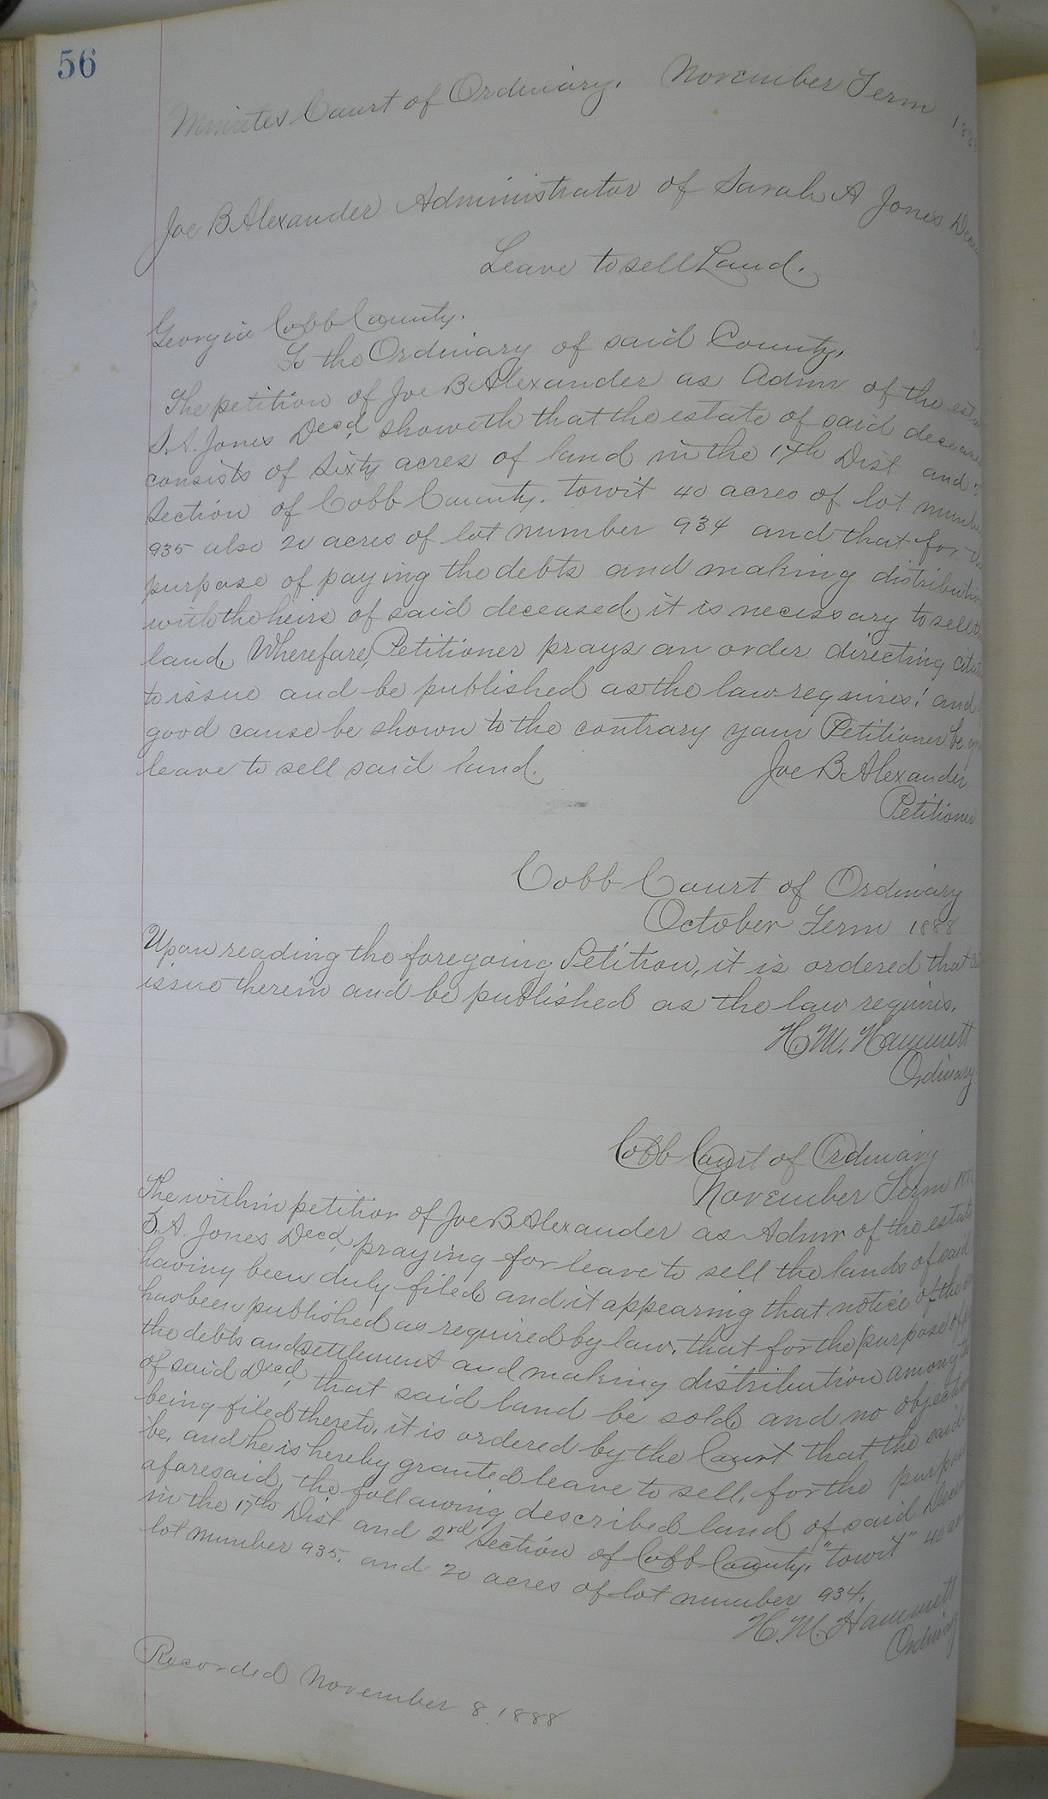 56
Minutes Court of Ordinary. November Term 188
Joe B Alexander Administrator of Sarah A Jones Dec
Leave to sell Land.
Georgia Cobb County.
To the Ordinary of said County,
The petition of Joe B Alexander as Admr of the esta
S. A. Jones Decd, showeth that the estate of said deceas
consists of Sixty acres of land in the 17th Dist and
Section of Cobb County. towit 40 acres of lot numbe
935 also 20 acres of lot number 934 and that for the
purpose of paying the debts and making distributio
with the heirs of said deceased, it is necessary to sell
land, Wherefare, Petitioner prays an order directing cita
to issue and be published as the law requires; and
good cause be shown to the contrary your Petitioner be
leave to sell said land.
Joe B. Alexander
Petitioner
Cobb Court of Ordinary
October Term 1888
Upon reading the foregoing Petition, it is ordered that
issue therein and be published as the law requires.
H. M. Hammett
Ordinary
Cobb Court of Ordinary
November Term 188
The within petition of Joe B Alexander as Admr of the estate
S. A. Jones Decd, praying for leave to sell the lands of said
having been duly filed and it appearing that notice of the
has been published as required by law, that for the purpose of
the debts and settlement and making distribution among the
of said Decd, that said land be sold, and no objection
being filed thereto, it is ordered by the Court that the said
be, and he is hereby granted leave to sell, for the purpose
aforesaid, the following described land of said Decea
in the 17th Dist and 2nd Section of Cobb County, "towit" 40 acr
lot number 935, and 20 acres of lot number 934.
H. M. Hammett
Ordinary
Recorded November 8, 1888